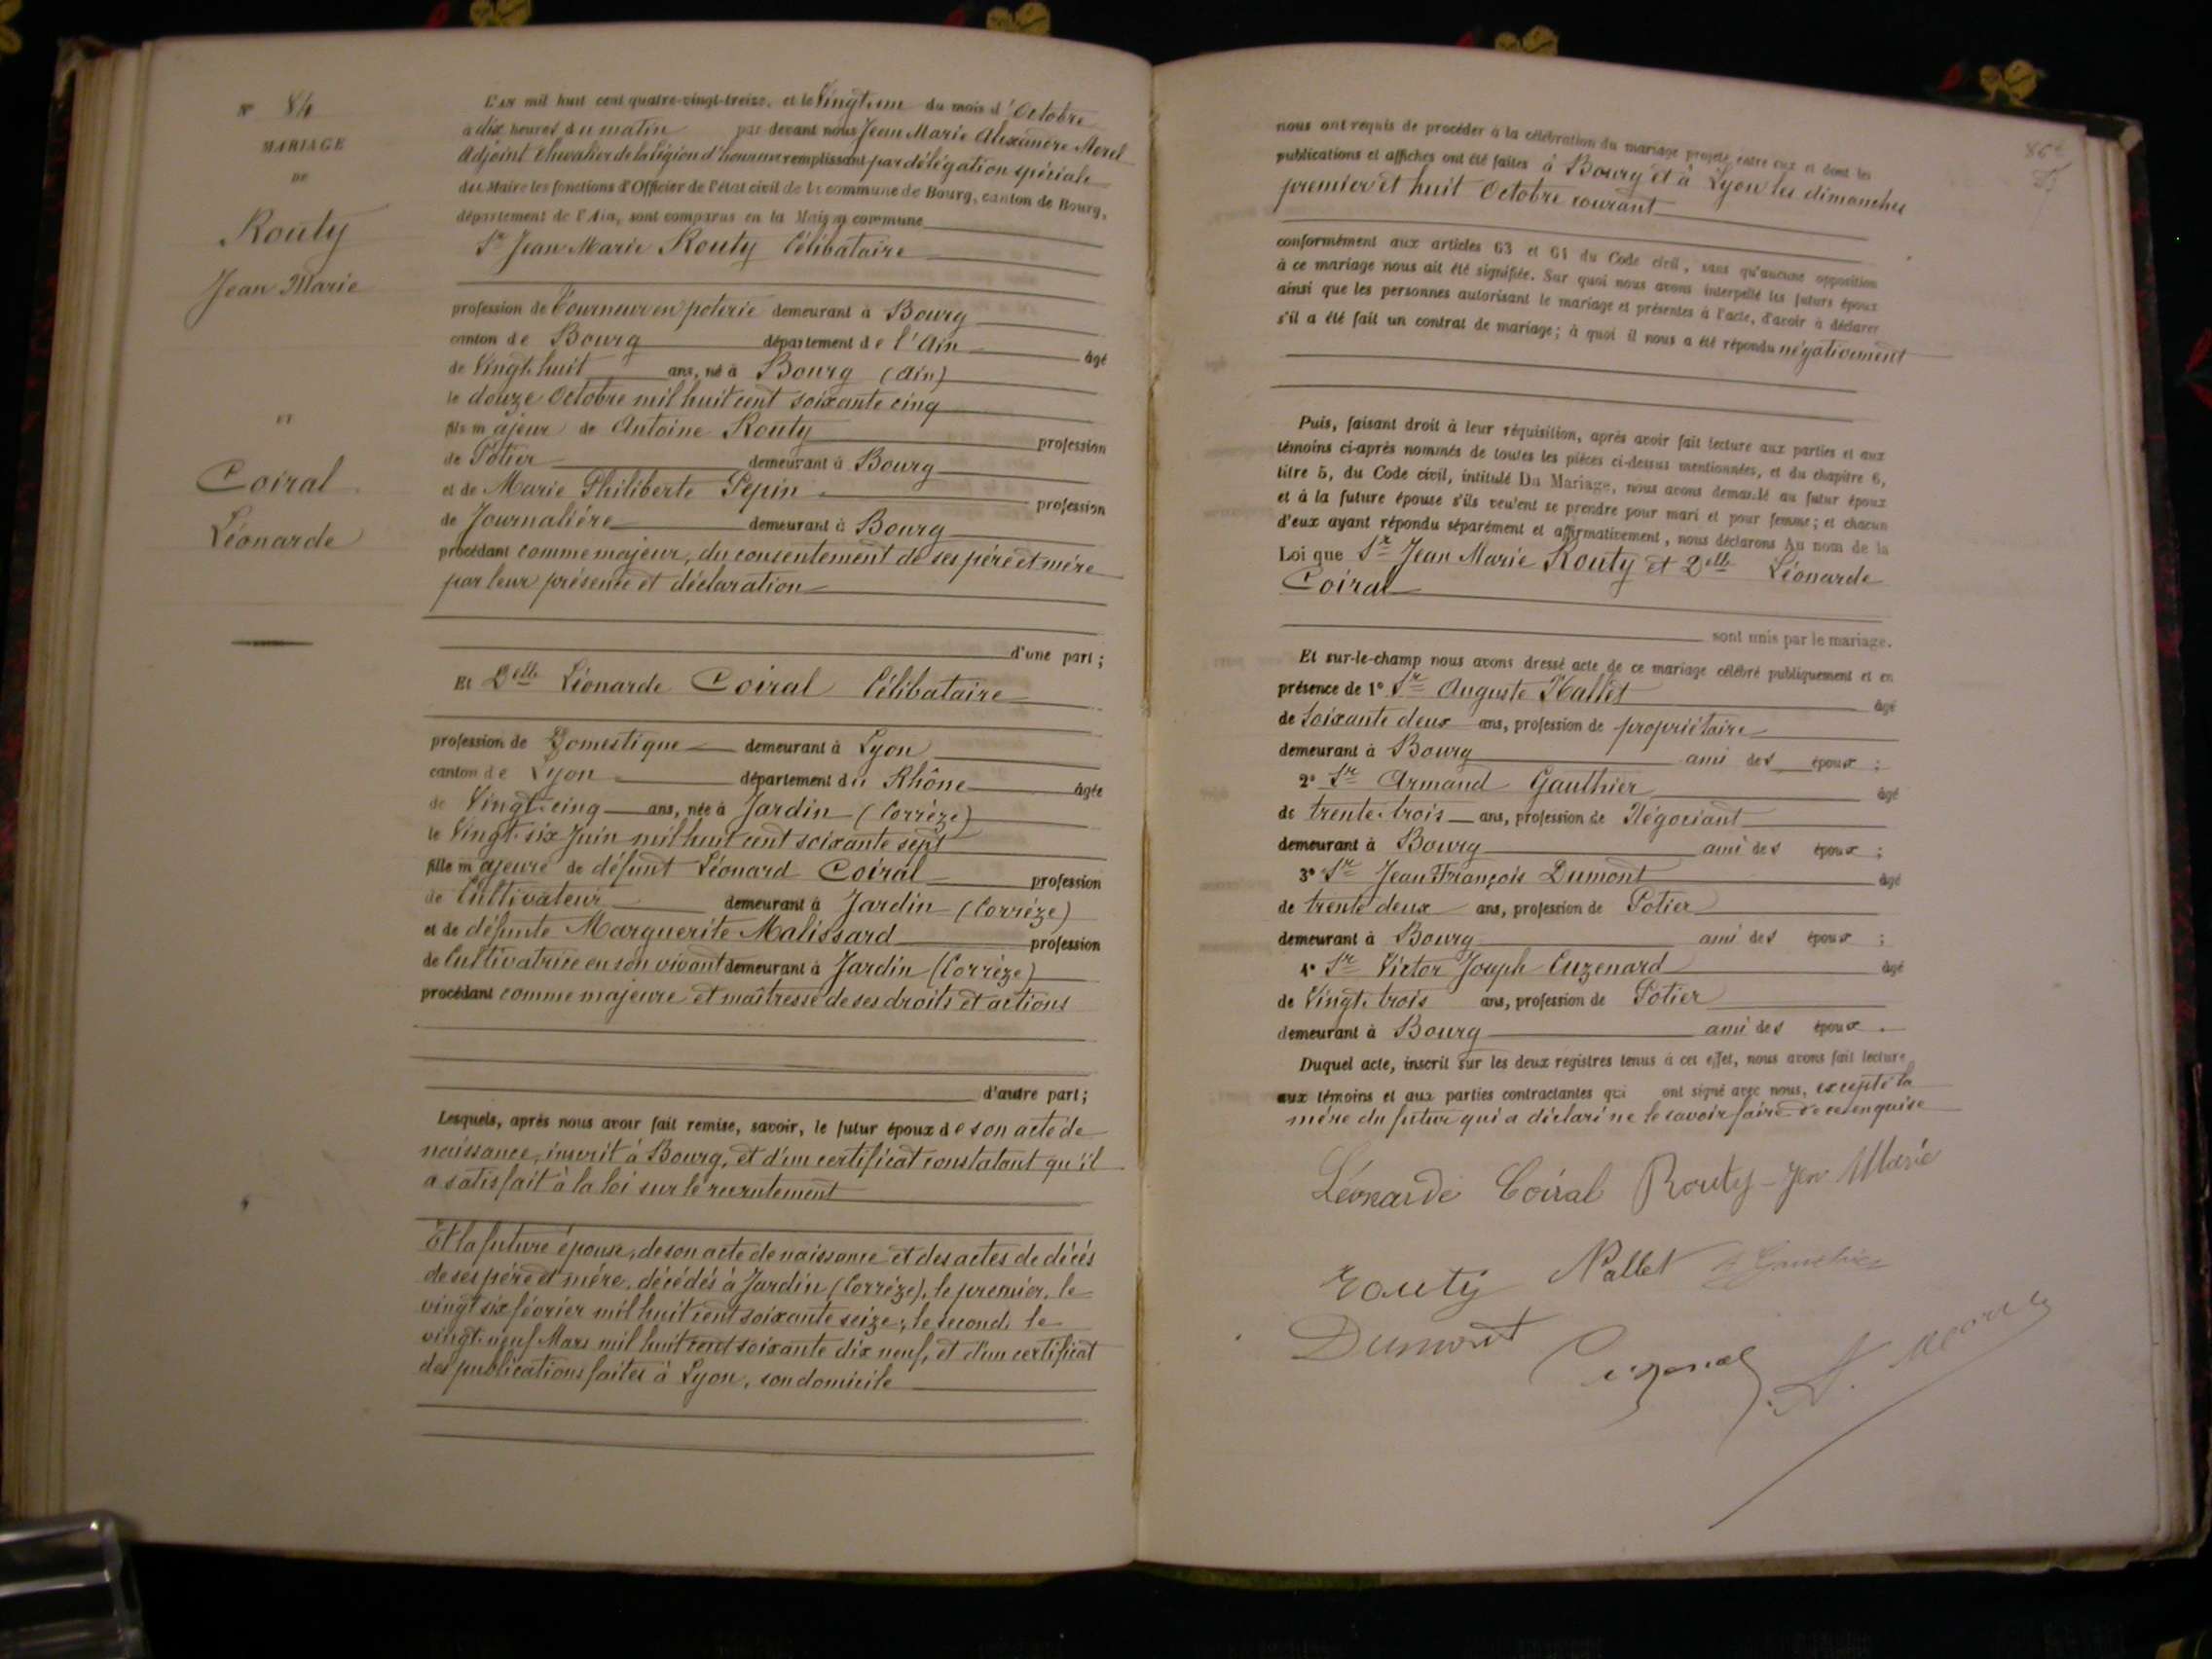 N° 84
MARIAGE
DE
Routy
Jean Marie
ET
Coiral
Léonarde
L'AN mil huit cent quatre-vingt-treize, et le Vingt-un du mois d'Octobre
à dix heures du matin par devant nous Jean Marie Alexandre Morel
Adjoint Chevalier de la légion d'honneur remplissant par délégation spéciale
du Maire les fonctions d'Officier de l'état civil de la commune de Bourg, canton de Bourg,
département de l'Ain, sont comparus en la Maison commune
Sr Jean Marie Routy Célibataire
profession de Tourneur en poterie demeurant à Bourg
canton de Bourg département de l'Ain âgé
de Vingt-huit ans, né à Bourg (Ain)
le douze Octobre mil huit cent soixante cinq
fils majeur de Antoine Routy profession
de Potier demeurant à Bourg
et de Marie Philiberte Pepin profession
de Journalière demeurant à Bourg
procédant comme majeur, du consentement de ses père et mère
par leur présence et déclaration
d'une part;
Et Delle Léonarde Coiral Célibataire
profession de Domestique demeurant à Lyon
canton de Lyon département du Rhône âgée
de Vingt-cinq ans, née à Jardin (Corrèze)
le Vingt-six Juin mil huit cent soixante sept
fille majeure de défunt Léonard Coiral profession
de Cultivateur demeurant à Jardin (Corrèze)
et de défunte Marguerite Malissard profession
de Cultivatrice en son vivant demeurant à Jardin (Corrèze)
procédant comme majeure et maîtresse de ses droits et actions
d'autre part;
Lesquels, après nous avoir fait remise, savoir, le futur époux de son acte de
naissance, inscrit à Bourg, et d'un certificat constatant qu'il
a satisfait à la loi sur le recrutement
Et la future épouse, de son acte de naissance et des actes de décès
de ses père et mère, décédés à Jardin (Corrèze), le premier, le
vingt six février mil huit cent soixante seize, le second, le
vingt-neuf Mars mil huit cent soixante dix neuf, et d'un certificat
des publications faites à Lyon, son domicile
nous ont requis de procéder à la célébration du mariage projeté entre eux et dont les
publications et affiches ont été faites à Bourg et à Lyon les dimanches
premier et huit Octobre courant
conformément aux articles 63 et 64 du Code civil, sans qu'aucune opposition
à ce mariage nous ait été signifiée. Sur quoi nous avons interpellé les futurs époux
ainsi que les personnes autorisant le mariage et présentes à l'acte, d'avoir à déclarer
s'il a été fait un contrat de mariage; à quoi il nous a été répondu négativement
Puis, faisant droit à leur réquisition, après avoir fait lecture aux parties et aux
témoins ci-après nommés de toutes les pièces ci-dessus mentionnées, et du chapitre 6,
titre 5, du Code civil, intitulé Du Mariage, nous avons demandé au futur époux
et à la future épouse s'ils veulent se prendre pour mari et pour femme; et chacun
d'eux ayant répondu séparément et affirmativement, nous déclarons Au nom de la
Loi que Sr Jean Marie Routy et Delle Léonarde
Coiral
sont unis par le mariage.
Et sur-le-champ nous avons dressé acte de ce mariage célébré publiquement et en
présence de 1° Sr Auguste Nallet âgé
de soixante deux ans, profession de propriétaire
demeurant à Bourg ami des époux ;
2° Sr Armand Gauthier âgé
de trente-trois ans, profession de Négociant
demeurant à Bourg ami des époux ;
3° Sr Jean François Dumont âgé
de trente deux ans, profession de Potier
demeurant à Bourg ami des époux ;
4° Sr Victor Joseph Cuzenard âgé
de Vingt-trois ans, profession de Potier
demeurant à Bourg ami des époux .
Duquel acte, inscrit sur les deux registres tenus à cet effet, nous avons fait lecture
aux témoins et aux parties contractantes qui ont signé avec nous, excepté la
mère du futur qui a déclaré ne le savoir faire de ce enquise
Léonarde Coiral Routy Jean Marie
Routy Nallet A Gauthier
Dumont
A. Morel